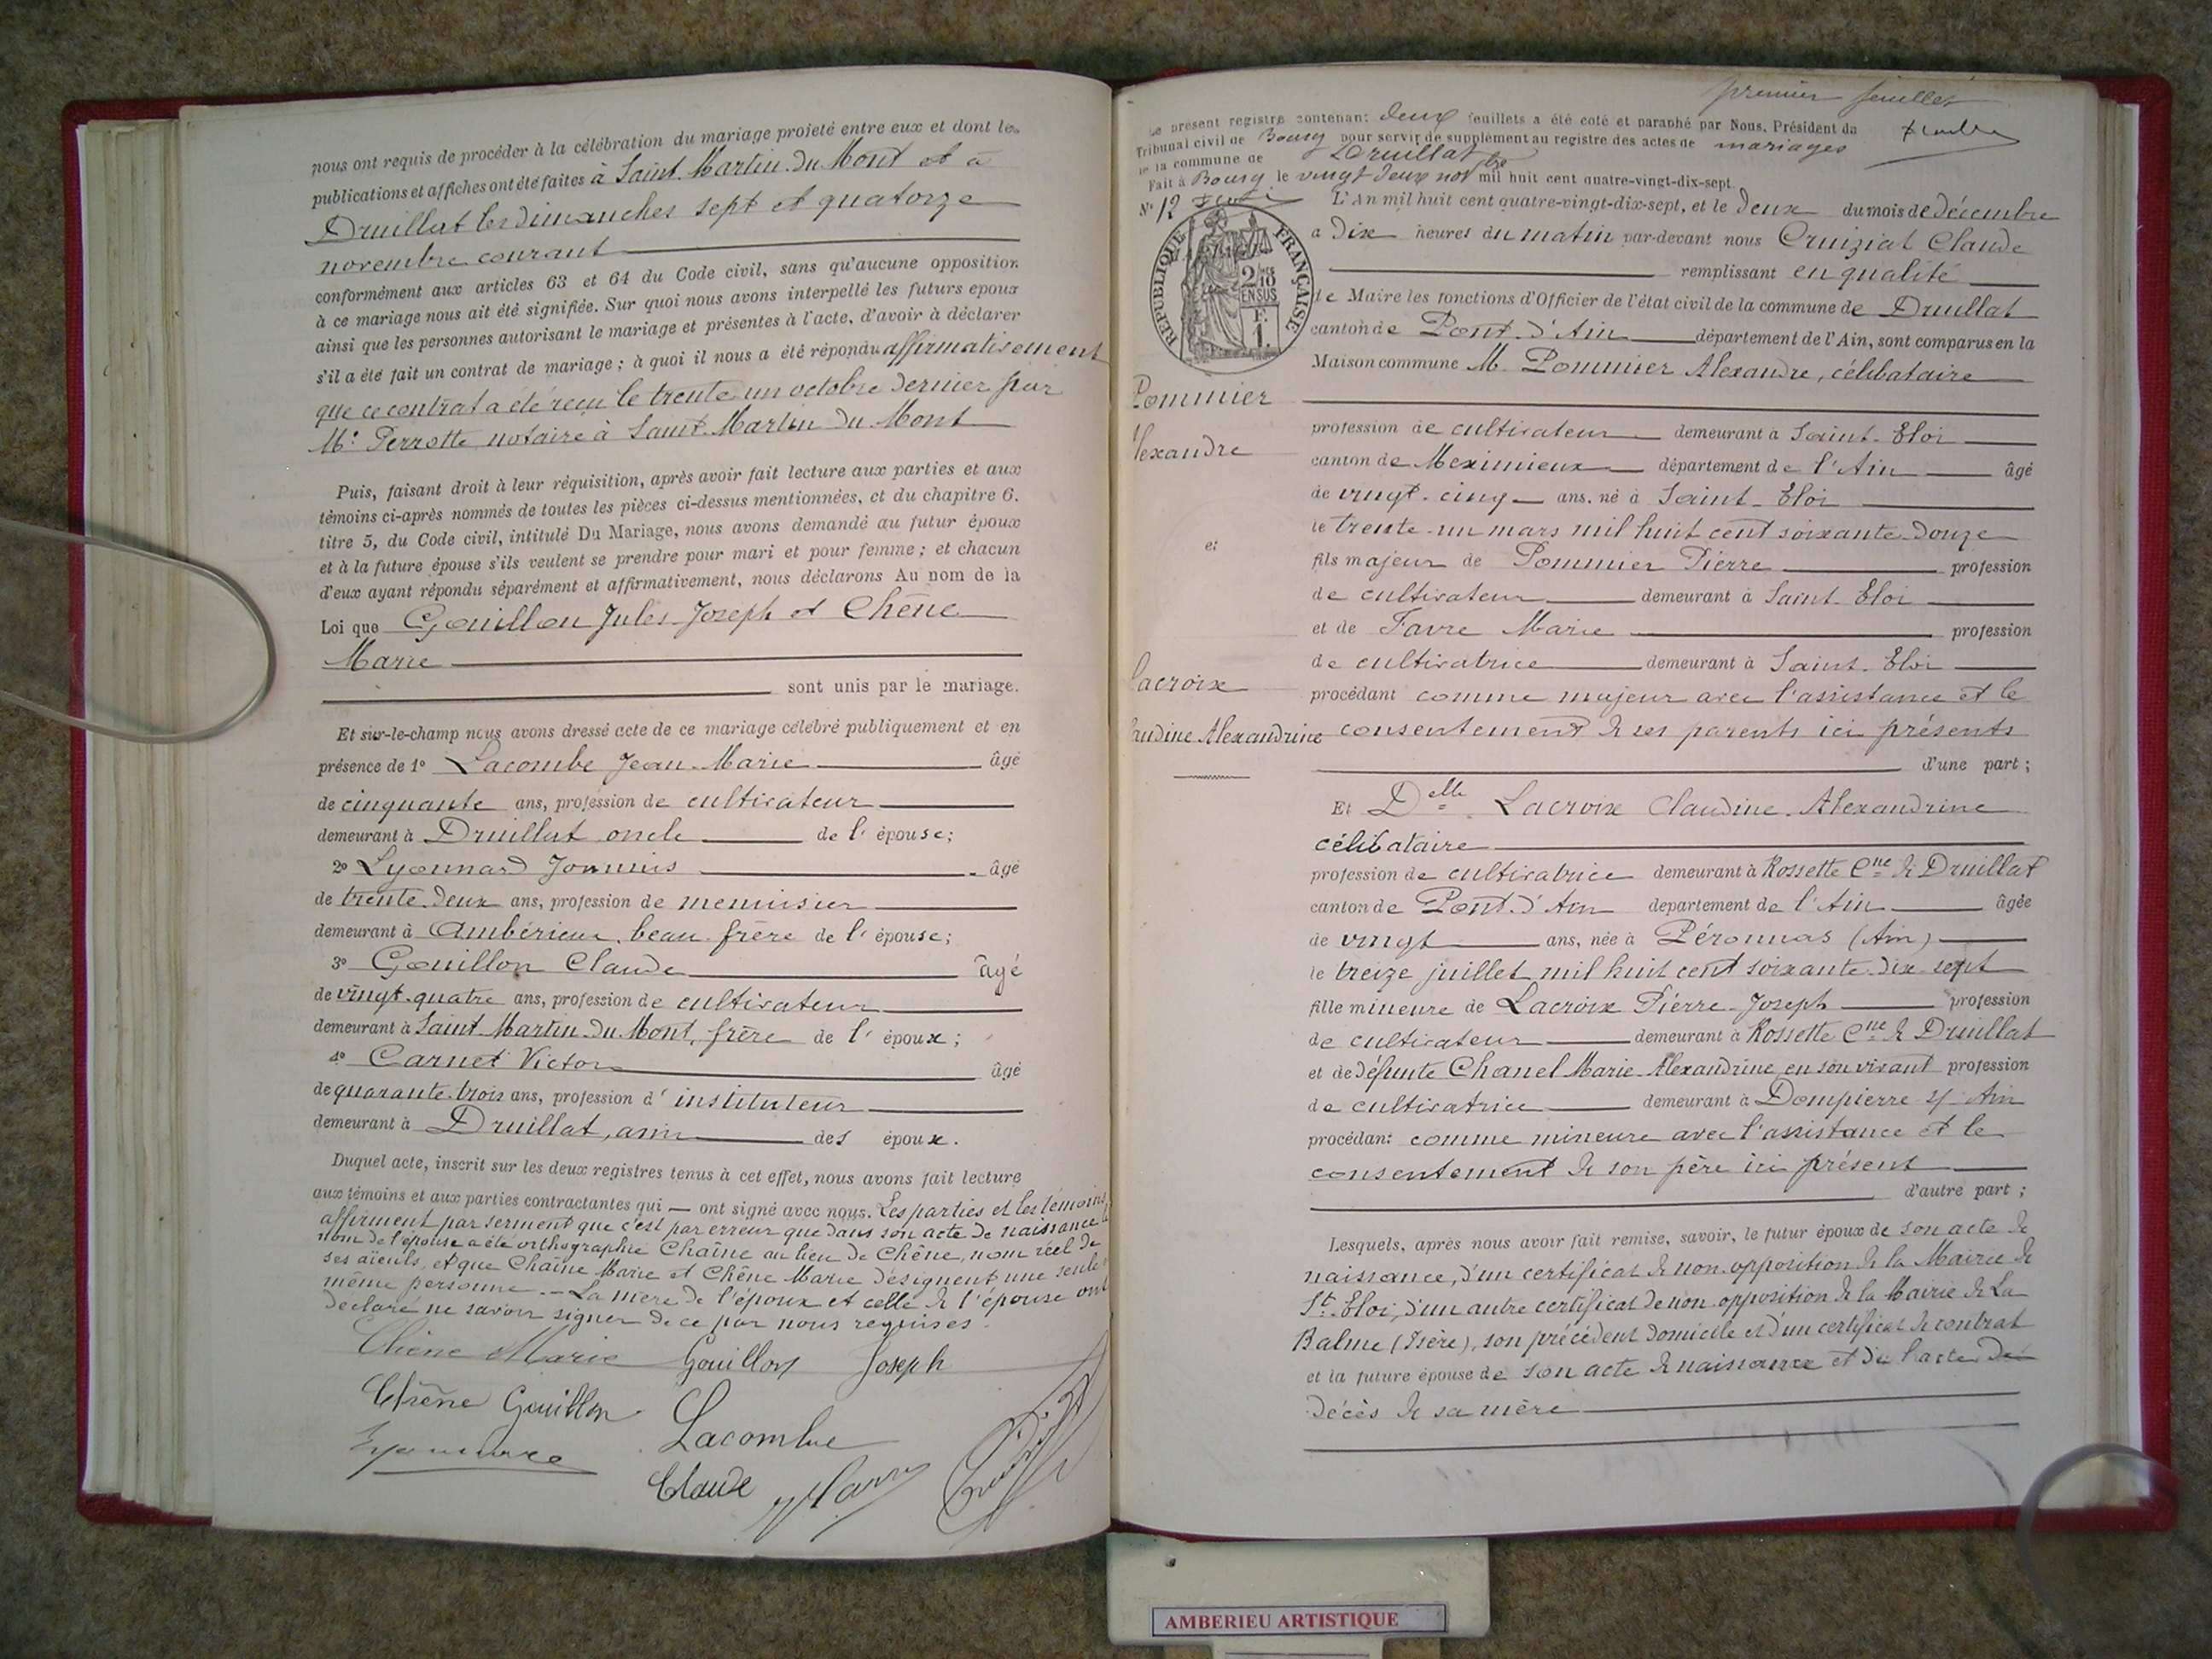 nous ont requis de procéder à la célébration du mariage projeté entre eux et dont les
publications et affiches ont été faites à Saint Martin du Mont et à
Druillat les dimanches sept et quatorze
novembre courant
conformément aux articles 63 et 64 du Code civil, sans qu'aucune opposition
à ce mariage nous ait été signifiée. Sur quoi nous avons interpellé les futurs epoux
ainsi que les personnes autorisant le mariage et présentes à l'acte, d'avoir à déclarer
s'il a été fait un contrat de mariage ; à quoi il nous a été répondu affirmativement
que ce contrat a été reçu le trente un octobre dernier par
Me Perrotte notaire à Saint Martin du Mont
Puis, faisant droit à leur réquisition, après avoir fait lecture aux parties et aux
témoins ci-après nommés de toutes les pièces ci-dessus mentionnées, et du chapitre 6.
titre 5, du Code civil, intitulé Du Mariage, nous avons demandé au futur époux
et à la future épouse s'ils veulent se prendre pour mari et pour femme ; et chacun
d'eux ayant répondu séparément et affirmativement, nous déclarons Au nom de la
Loi que Gouillon Jules Joseph et Chêne
Marie
sont unis par le mariage.
Et sur-le-champ nous avons dressé acte de ce mariage célébré publiquement et en
présence de 1º Lacombe Jean-Marie âgé
de cinquante ans, profession de cultivateur
demeurant à Druillat oncle de l' épouse;
2º Lyonnard Joannis âgé
de trente-deux ans, profession de menuisier
demeurant à Ambérieu, beau-frère de l' épouse;
3º Gouillon Claude âgé
de vingt-quatre ans, profession de cultivateur
demeurant à Saint Martin du Mont, frère de l' époux ;
4º Carnet Victor âgé
de quarante-trois ans, profession d' instituteur
demeurant à Druillat, ami des époux.
Duquel acte, inscrit sur les deux registres tenus à cet effet, nous avons fait lecture
aux témoins et aux parties contractantes qui — ont signé avec nous. Les parties et les témoins
affirment par serment que c'est par erreur que dans son acte de naissance le
nom de l'épouse a été orthographié Chaîne au lieu de Chêne, nom réel de
ses aïeuls, et que Chaîne Marie et Chêne Marie désignent une seule
même personne. — La mère de l'époux et celle de l'épouse ont
déclaré ne savoir signer de ce par nous requises.
Chêne Marie Gouillon Joseph
Chêne Gouillon Lacombe
Claude
premier feuillet
Le présent registre contenant deux feuillets a été coté et paraphé par Nous, Président du
Tribunal civil de Bourg pour servir de supplément au registre des actes de mariages
de la commune de Druillat
Fait à Bourg, le vingt deux nov bre mil huit cent quatre-vingt-dix-sept.
Nº 12
L'An mil huit cent quatre-vingt-dix-sept, et le deux du mois de décembre
a dix heures du matin par-devant nous Cruiziat Claude
remplissant en qualité
de Maire les fonctions d'Officier de l'état civil de la commune de Druillat
canton de Pont-d'Ain département de l'Ain, sont comparus en la
Maison commune M. Pommier Alexandre, célibataire
REPUBLIQUE FRANÇAISE
2/10
EN SUS
F.
1.
Pommier
lexandre
et
Lacroix
audine Alexandrine
profession de cultivateur demeurant à Saint-Eloi
canton de Meximieux département de l'Ain âgé
de vingt-cinq ans, né à Saint-Eloi
le trente-un mars mil huit cent soixante-douze
fils majeur de Pommier Pierre profession
de cultivateur demeurant à Saint-Eloi
et de Favre Marie profession
de cultivatrice demeurant à Saint-Eloi
procédant comme majeur avec l'assistance et le
consentement de ses parents ici présents
d'une part ;
Et Delle Lacroix Claudine-Alexandrine
célibataire
profession de cultivatrice demeurant à Rossette Cne de Druillat
canton de Pont-d'Ain departement de l'Ain âgée
de vingt ans, née à Péronnas (Ain)
le treize juillet mil huit cent soixante-dix-sept
fille mineure de Lacroix Pierre-Joseph profession
de cultivateur demeurant à Rossette Cne de Druillat
et de défunte Chanel Marie-Alexandrine, en son vivant profession
de cultivatrice demeurant à Dompierre s/ Ain
procédant comme mineure avec l'assistance et le
consentement de son père ici présent
d'autre part ;
Lesquels, après nous avoir fait remise, savoir, le futur époux de son acte de
naissance, d'un certificat de non-opposition de la Mairie de
St-Eloi, d'un autre certificat de non-opposition de la Mairie de La
Balme (Isère), son précédent domicile et d'un certificat de contrat
et la future épouse de son acte de naissance et de l'acte de
décès de sa mère
AMBERIEU ARTISTIQUE